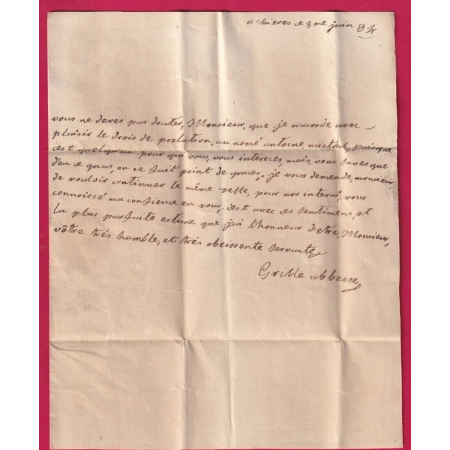 ce 3me juin 84
vous ne deves pas douter, Monsieur, que je acorde avec
plaisir le drois de prelation, au nomé antoine, michel, puisque
cest quelquun pour qui vous, vous intereces, mais vous saves que
den ce qcas, on ne fait point de graces, je vous demende, monsieur
de vouloir continuer le même zelle, pour nos interai, vous
connoissé ma confience en vous, cest avec ces sentimens, et
la plus parfaite estime que jai lhonneur detre, Monsieur,
vôtre trés humble, et trés obeissente servante
Grille abbesse